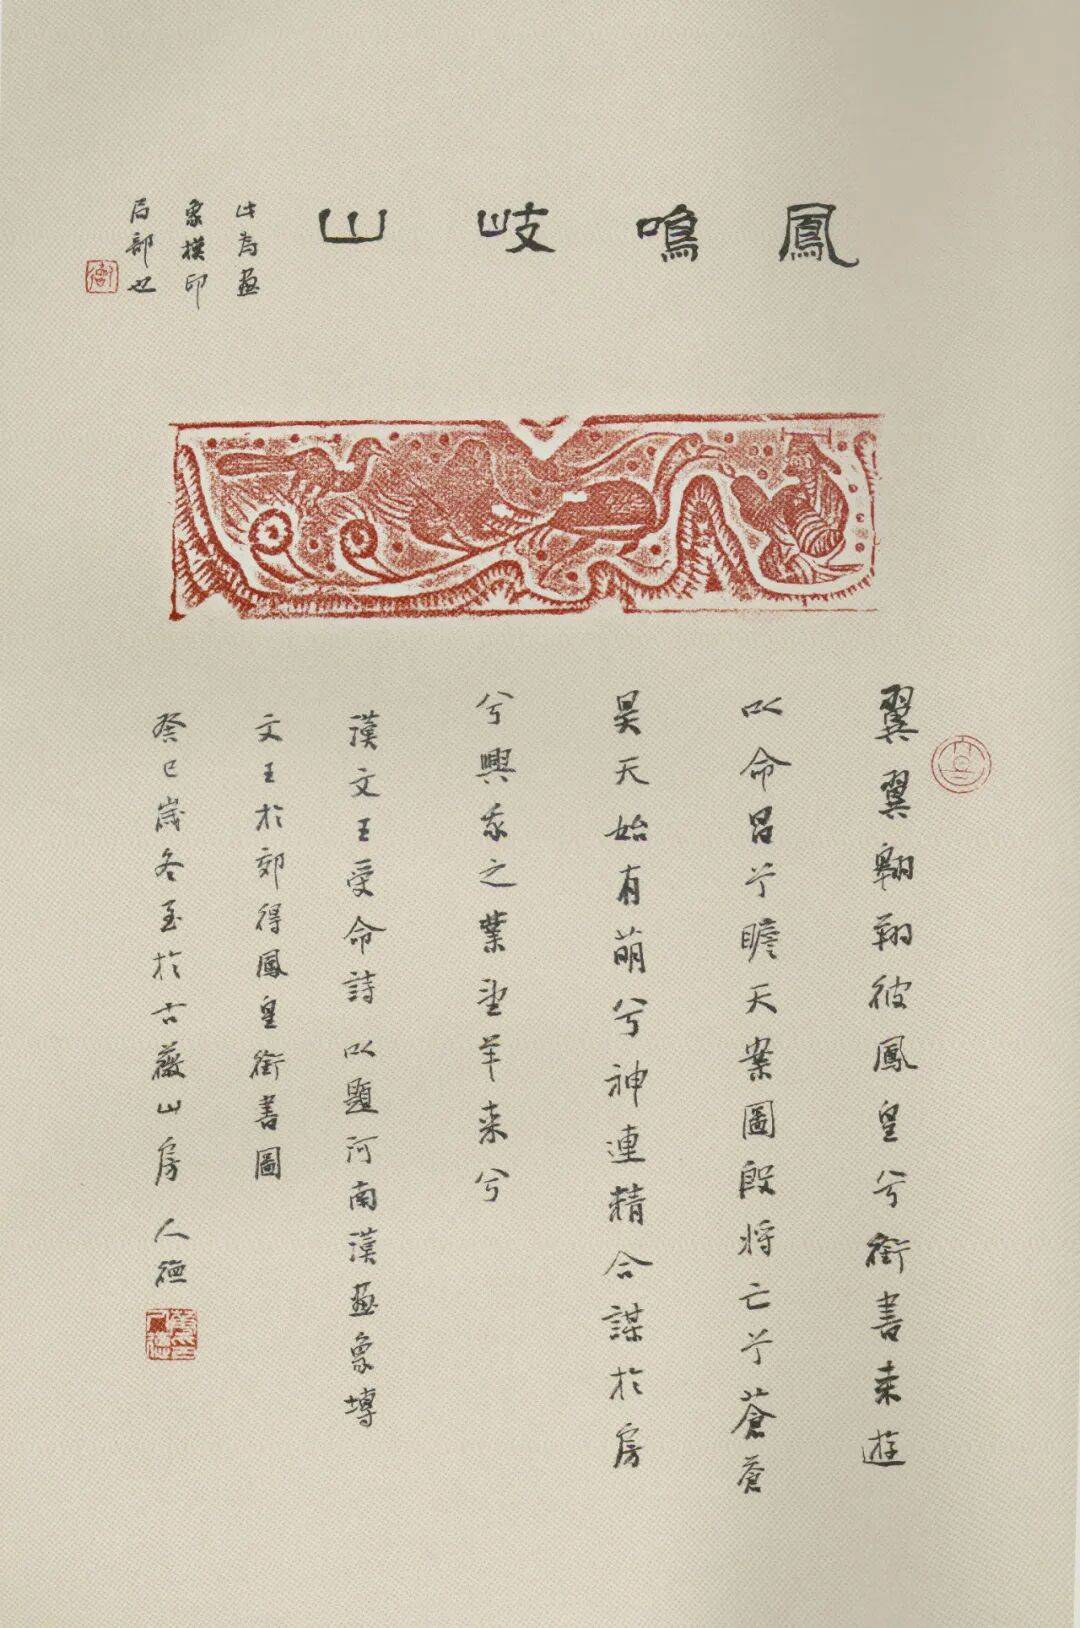 鳳鳴岐山
此為畫
象模印
局部也
翼翼翱翔彼鳳皇兮銜書来遊
以命昌兮瞻天案圖殷将亡兮蒼蒼
昊天始有萌兮神連精合謀於房
兮興我之業望羊来兮
漢文王受命詩以題河南漢畫象塼
文王於郊得鳳皇銜書圖
癸巳歲冬至於古薇山房 人德